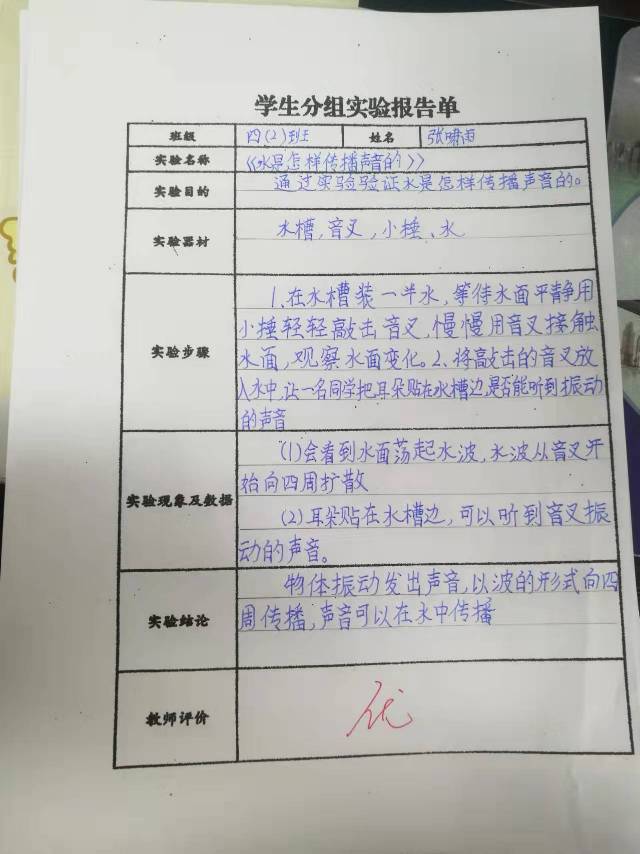 学生分组实验报告单
班级 四(2)班 姓名 张啸雨
实验名称 《水是怎样传播声音的》
实验目的 通过实验验证水是怎样传播声音的。
实验器材 水槽,音叉,小捶、水
实验步骤
1、在水槽装一半水,等待水面平静用
小捶轻轻敲击音叉,慢慢用音叉接触
水面,观察水面变化。2、将敲击的音叉放
入水中,让一名同学把耳朵贴在水槽边,是否能听到振动
的声音
实验现象及数据
(1)会看到水面荡起水波,水波从音叉开
始向四周扩散
(2)耳朵贴在水槽边,可以听到音叉振
动的声音。
实验结论
物体振动发出声音,以波的形式向四
周传播,声音可以在水中传播
教师评价 优